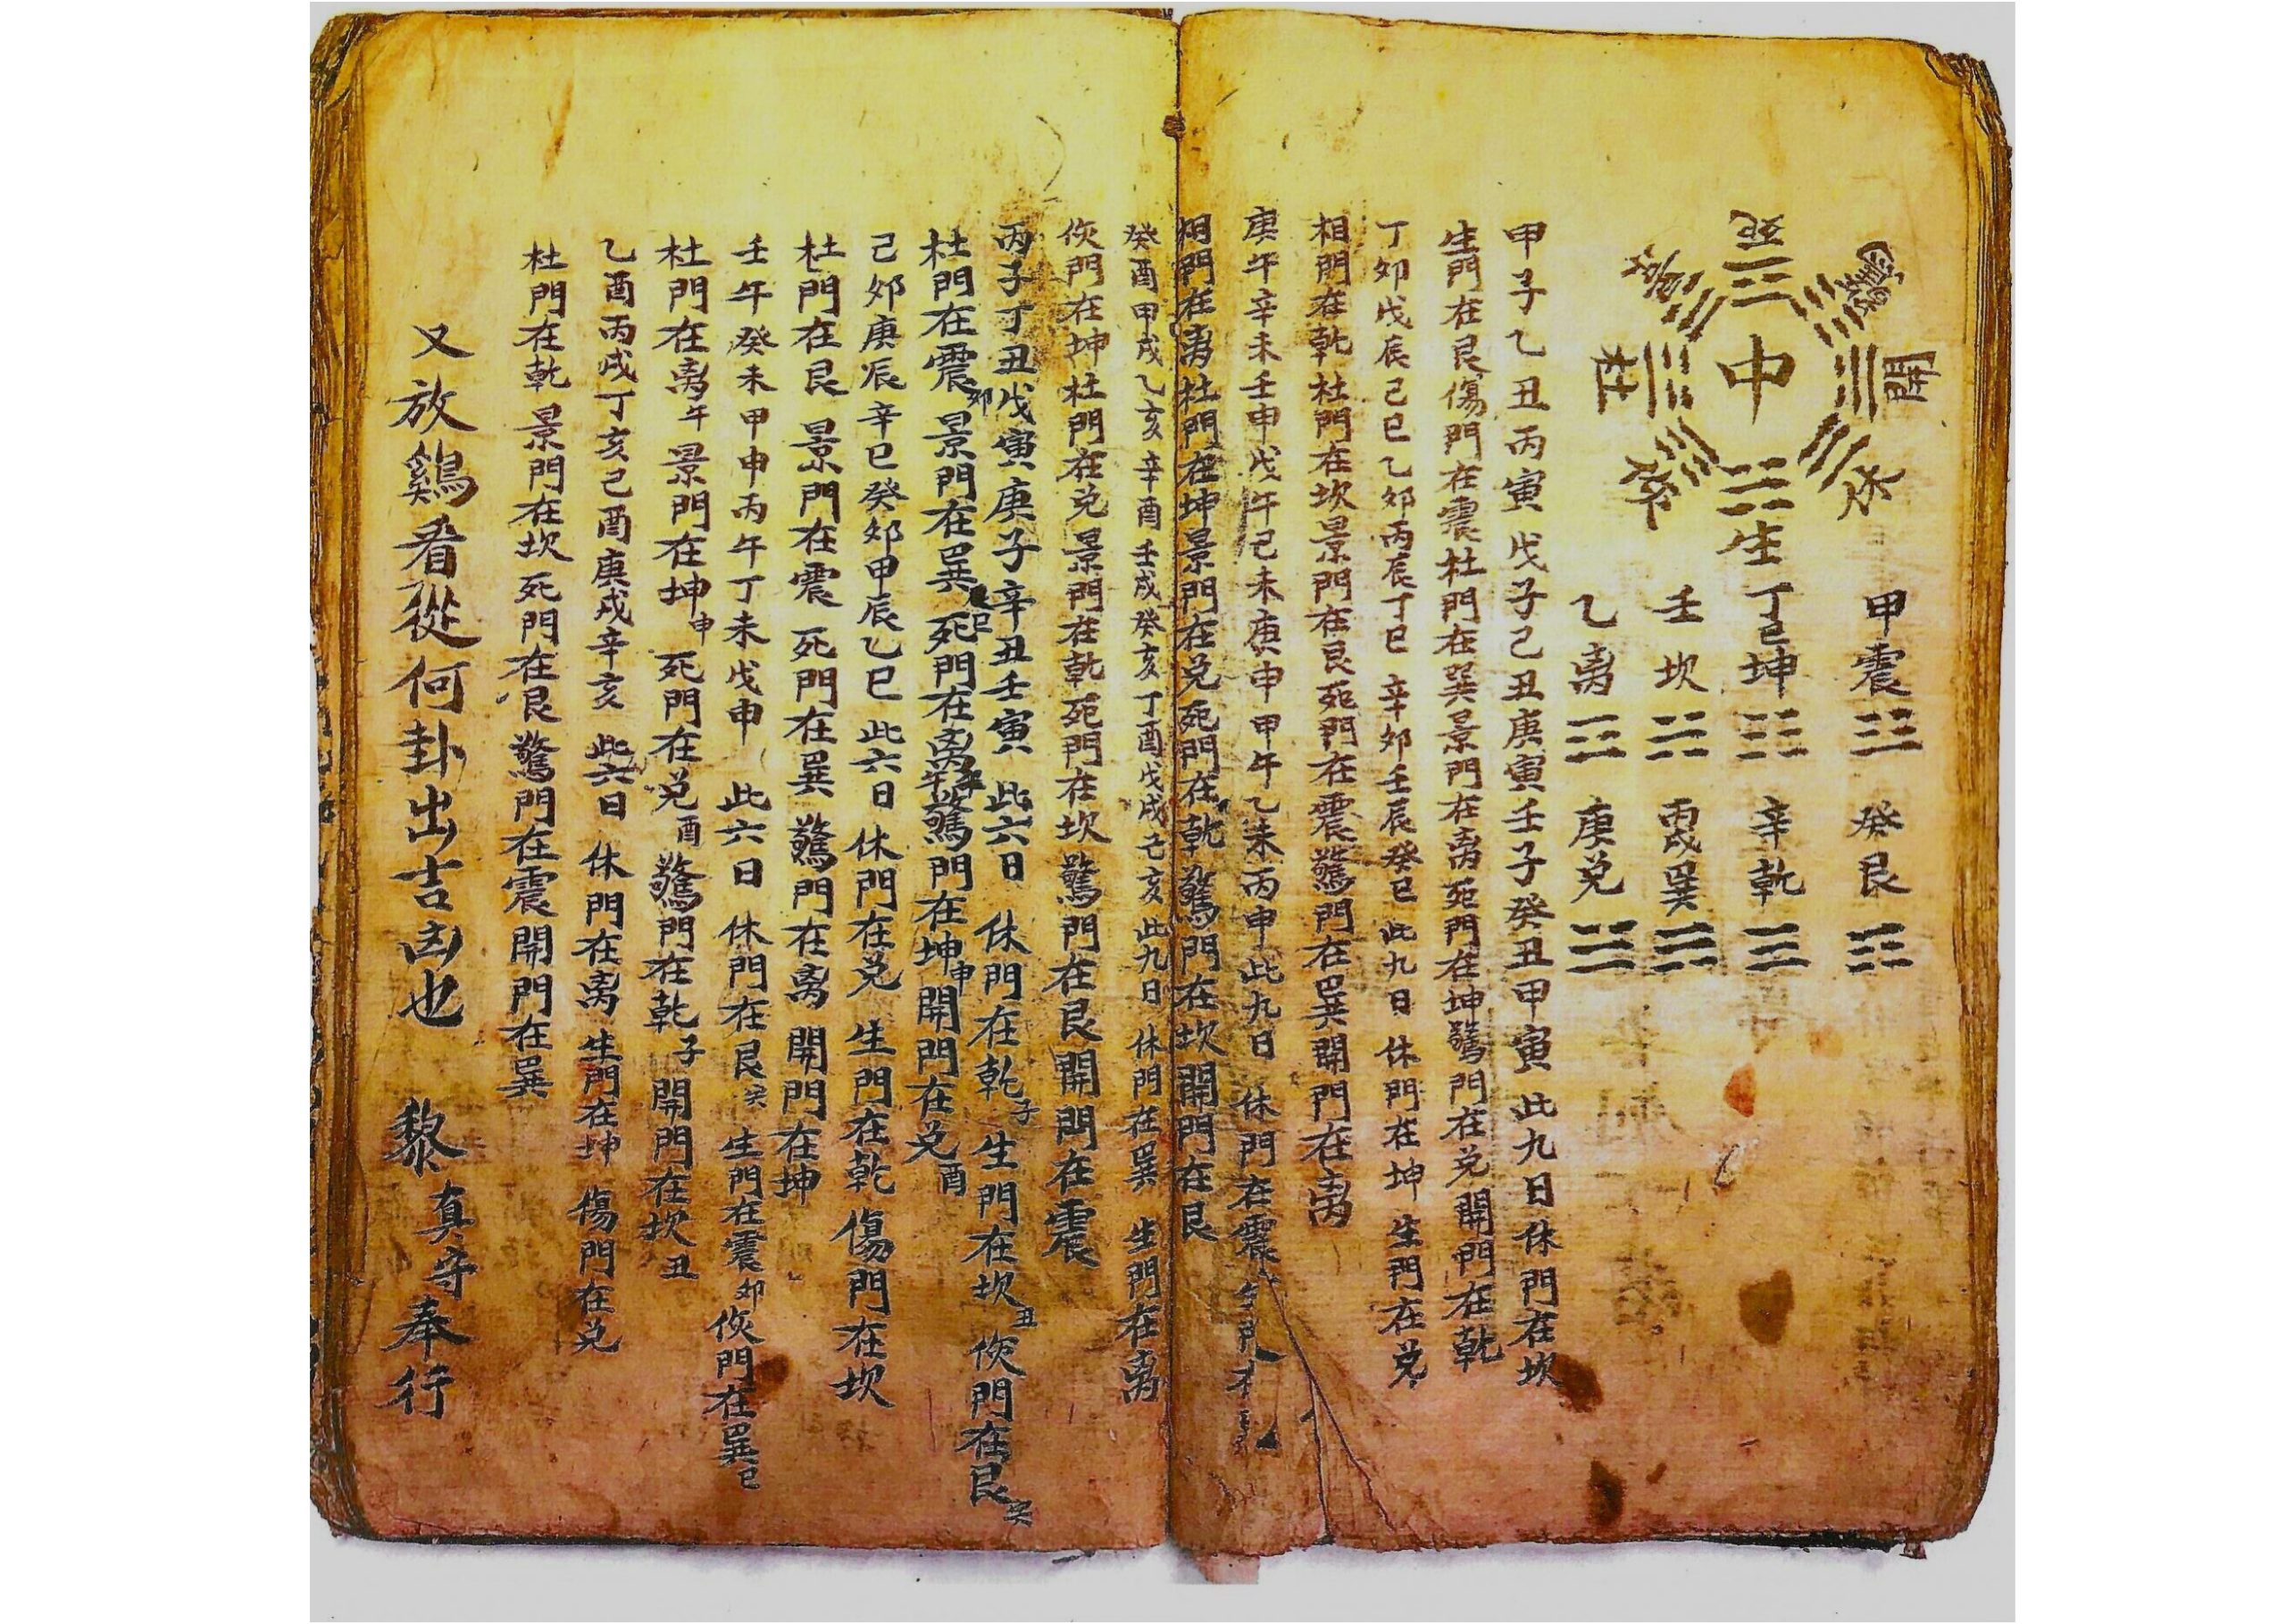 死
驚
開
休
生
傷
杜
中
甲震☳ 癸艮☶
丁巳坤☷ 辛乾☰
壬坎☵ 丙戌巽☴
乙离 庚兌
甲子乙丑丙寅戊子己丑庚寅壬子癸丑甲寅 此九日休門在坎
生門在艮傷門在震杜門在巽景門在离死門在坤驚門在兌 開門在乾
丁夘戊辰己巳乙夘丙辰丁巳 辛夘壬辰癸巳 此九日 休門在坤 生門在兌
相門在乾杜門在坎景門在艮死門在震驚門在巽開門在离
庚午辛未壬申戊午己未庚申甲午乙未丙申此九日 休門在震
相門在离杜門在坤景門在兌死門在乾驚門在坎開門在艮
癸酉甲戌乙亥辛酉壬戌癸亥丁酉戊戌己亥此九日 休門在巽 生門在离
㑥門在坤杜門在兌景門在乾死門在坎驚門在艮開門在震
丙子丁丑戊寅庚子辛丑壬寅 此六日 休門在乾子 生門在坎丑 㑥門在艮
杜門在震夘景門在巽巳死門在离午驚門在坤申開門在兌酉
己夘庚辰辛巳癸夘甲辰乙巳 此六日 休門在兌 生門在乾 傷門在坎
杜門在艮 景門在震 死門在巽 驚門在离 開門在坤
壬午癸未甲申丙午丁未戊申 此六日 休門在艮 生門在震夘㑥門在巽巳
杜門在离午景門在坤申死門在兌酉驚門在乾子開門在坎丑
乙酉丙戌丁亥己酉庚戌辛亥 此六日 休門在离 生門在坤 傷門在兌
杜門在乾 景門在坎 死門在艮 驚門在震 開門在巽
又放鷄看從何卦出吉凶也 黎真守奉行